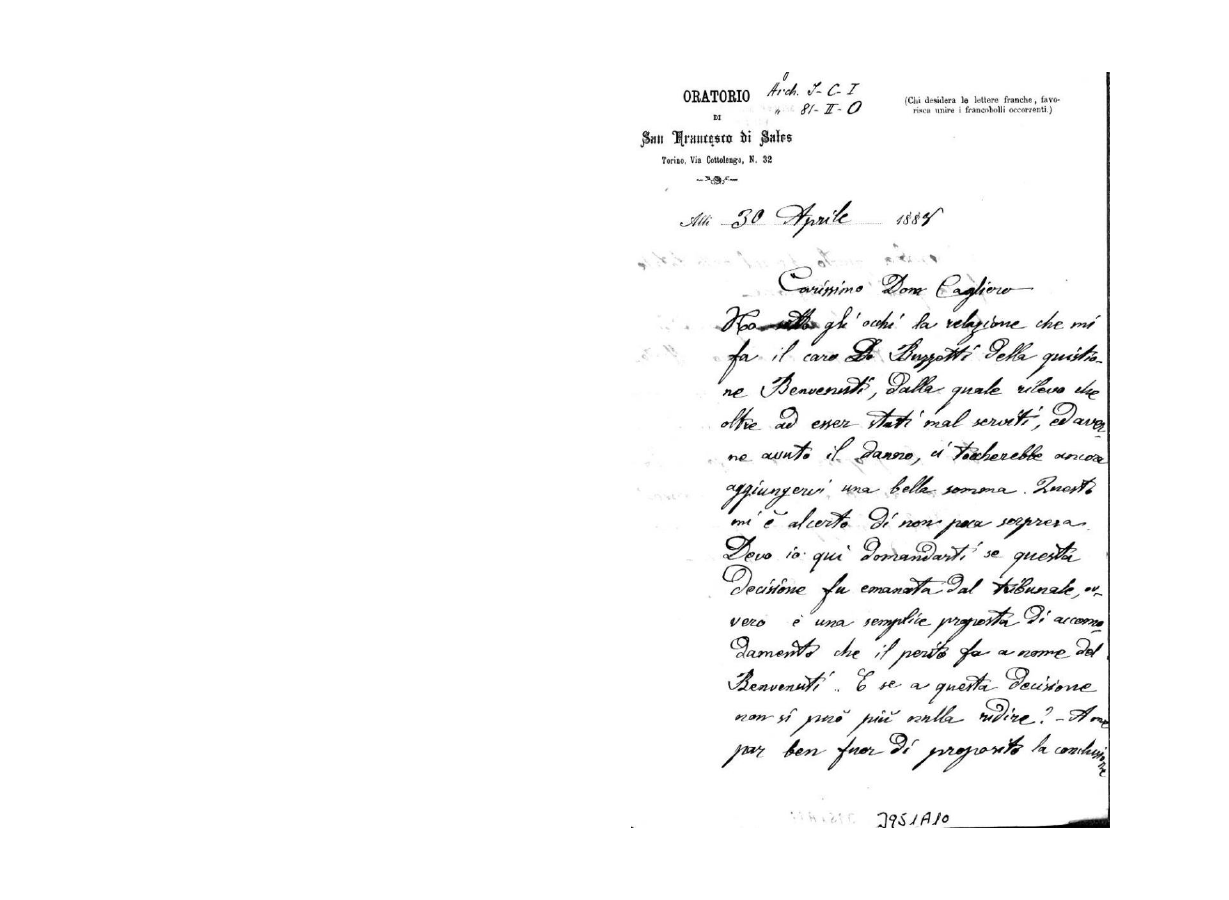 Arch. I-C-I
" 81-II-O
ORATORIO
DI
San Francesco di Sales
Torino, Via Cottolengo, N. 32
(Chi desidera le lettere franche, favo-
risca unire i francobolli occorrenti.)
Alli 30 Aprile 1881
Carissimo Don Cagliero
Ho sotto gli occhi la relazione che mi
fa il caro D. Buzzetti della quistio-
ne Benvenuti, dalla quale rilevo che
oltre ad esser stati mal serviti, ed aver
ne avuto il danno, ci toccherebbe ancora
aggiungervi una bella somma. Questo
mi è alcerto di non poca sorpresa.
Devo io qui domandarti se questa
decisione fu emanata dal tribunale, ov-
vero è una semplice proposta di accomo
damento che il perito fa a nome del
Benvenuti. E se a questa decisione
non si può più nulla ridire? - A me
par ben fuor di proposito la conclusione
J951A10